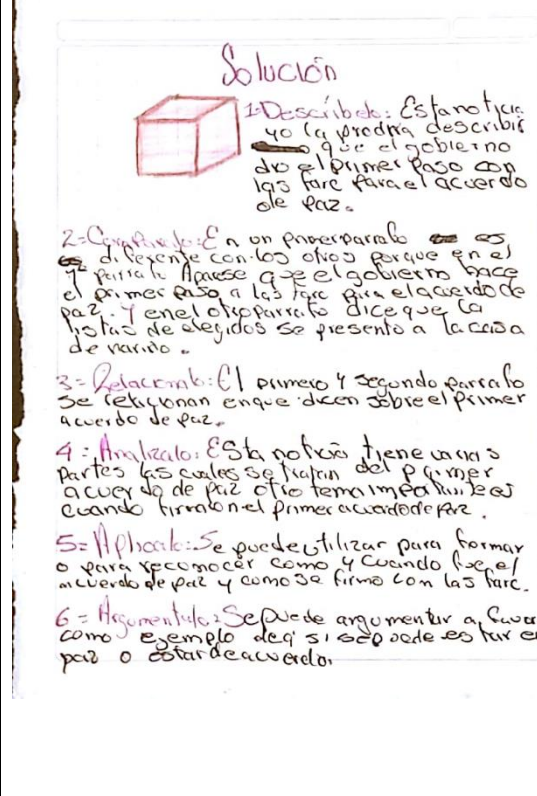 Solución
1=Descríbelo: Esta noticia
yo la prodria describir
que el gobierno
dio el primer Paso con
las farc Para el acuerdo
de paz.
2=Comparalo: En un primer parrafo es
diferente con los otros porque en el
1º parrafo Aparese que el gobierno hace
el primer paso a las farc para el acuerdo de
paz. Y en el otro parrafo dice que la
listas de elegidos se presento a la casa
de nariño.
3=Relacionalo: El primero y segundo parrafo
se relacionan en que dicen sobre el primer
acuerdo de paz.
4=Analizalo: Esta noticia tiene varias
partes las cuales se tratan del primer
acuerdo de paz otro tema importante es
cuando firmaron el primer acuerdo de paz.
5=Aplicalo: Se puede utilizar para formar
o para reconocer como y cuando fue el
acuerdo de paz y como se firmo con las farc.
6=Argumentalo: Se puede argumentar a favor
como ejemplo deci si se puede estar en
paz o estar de acuerdo.